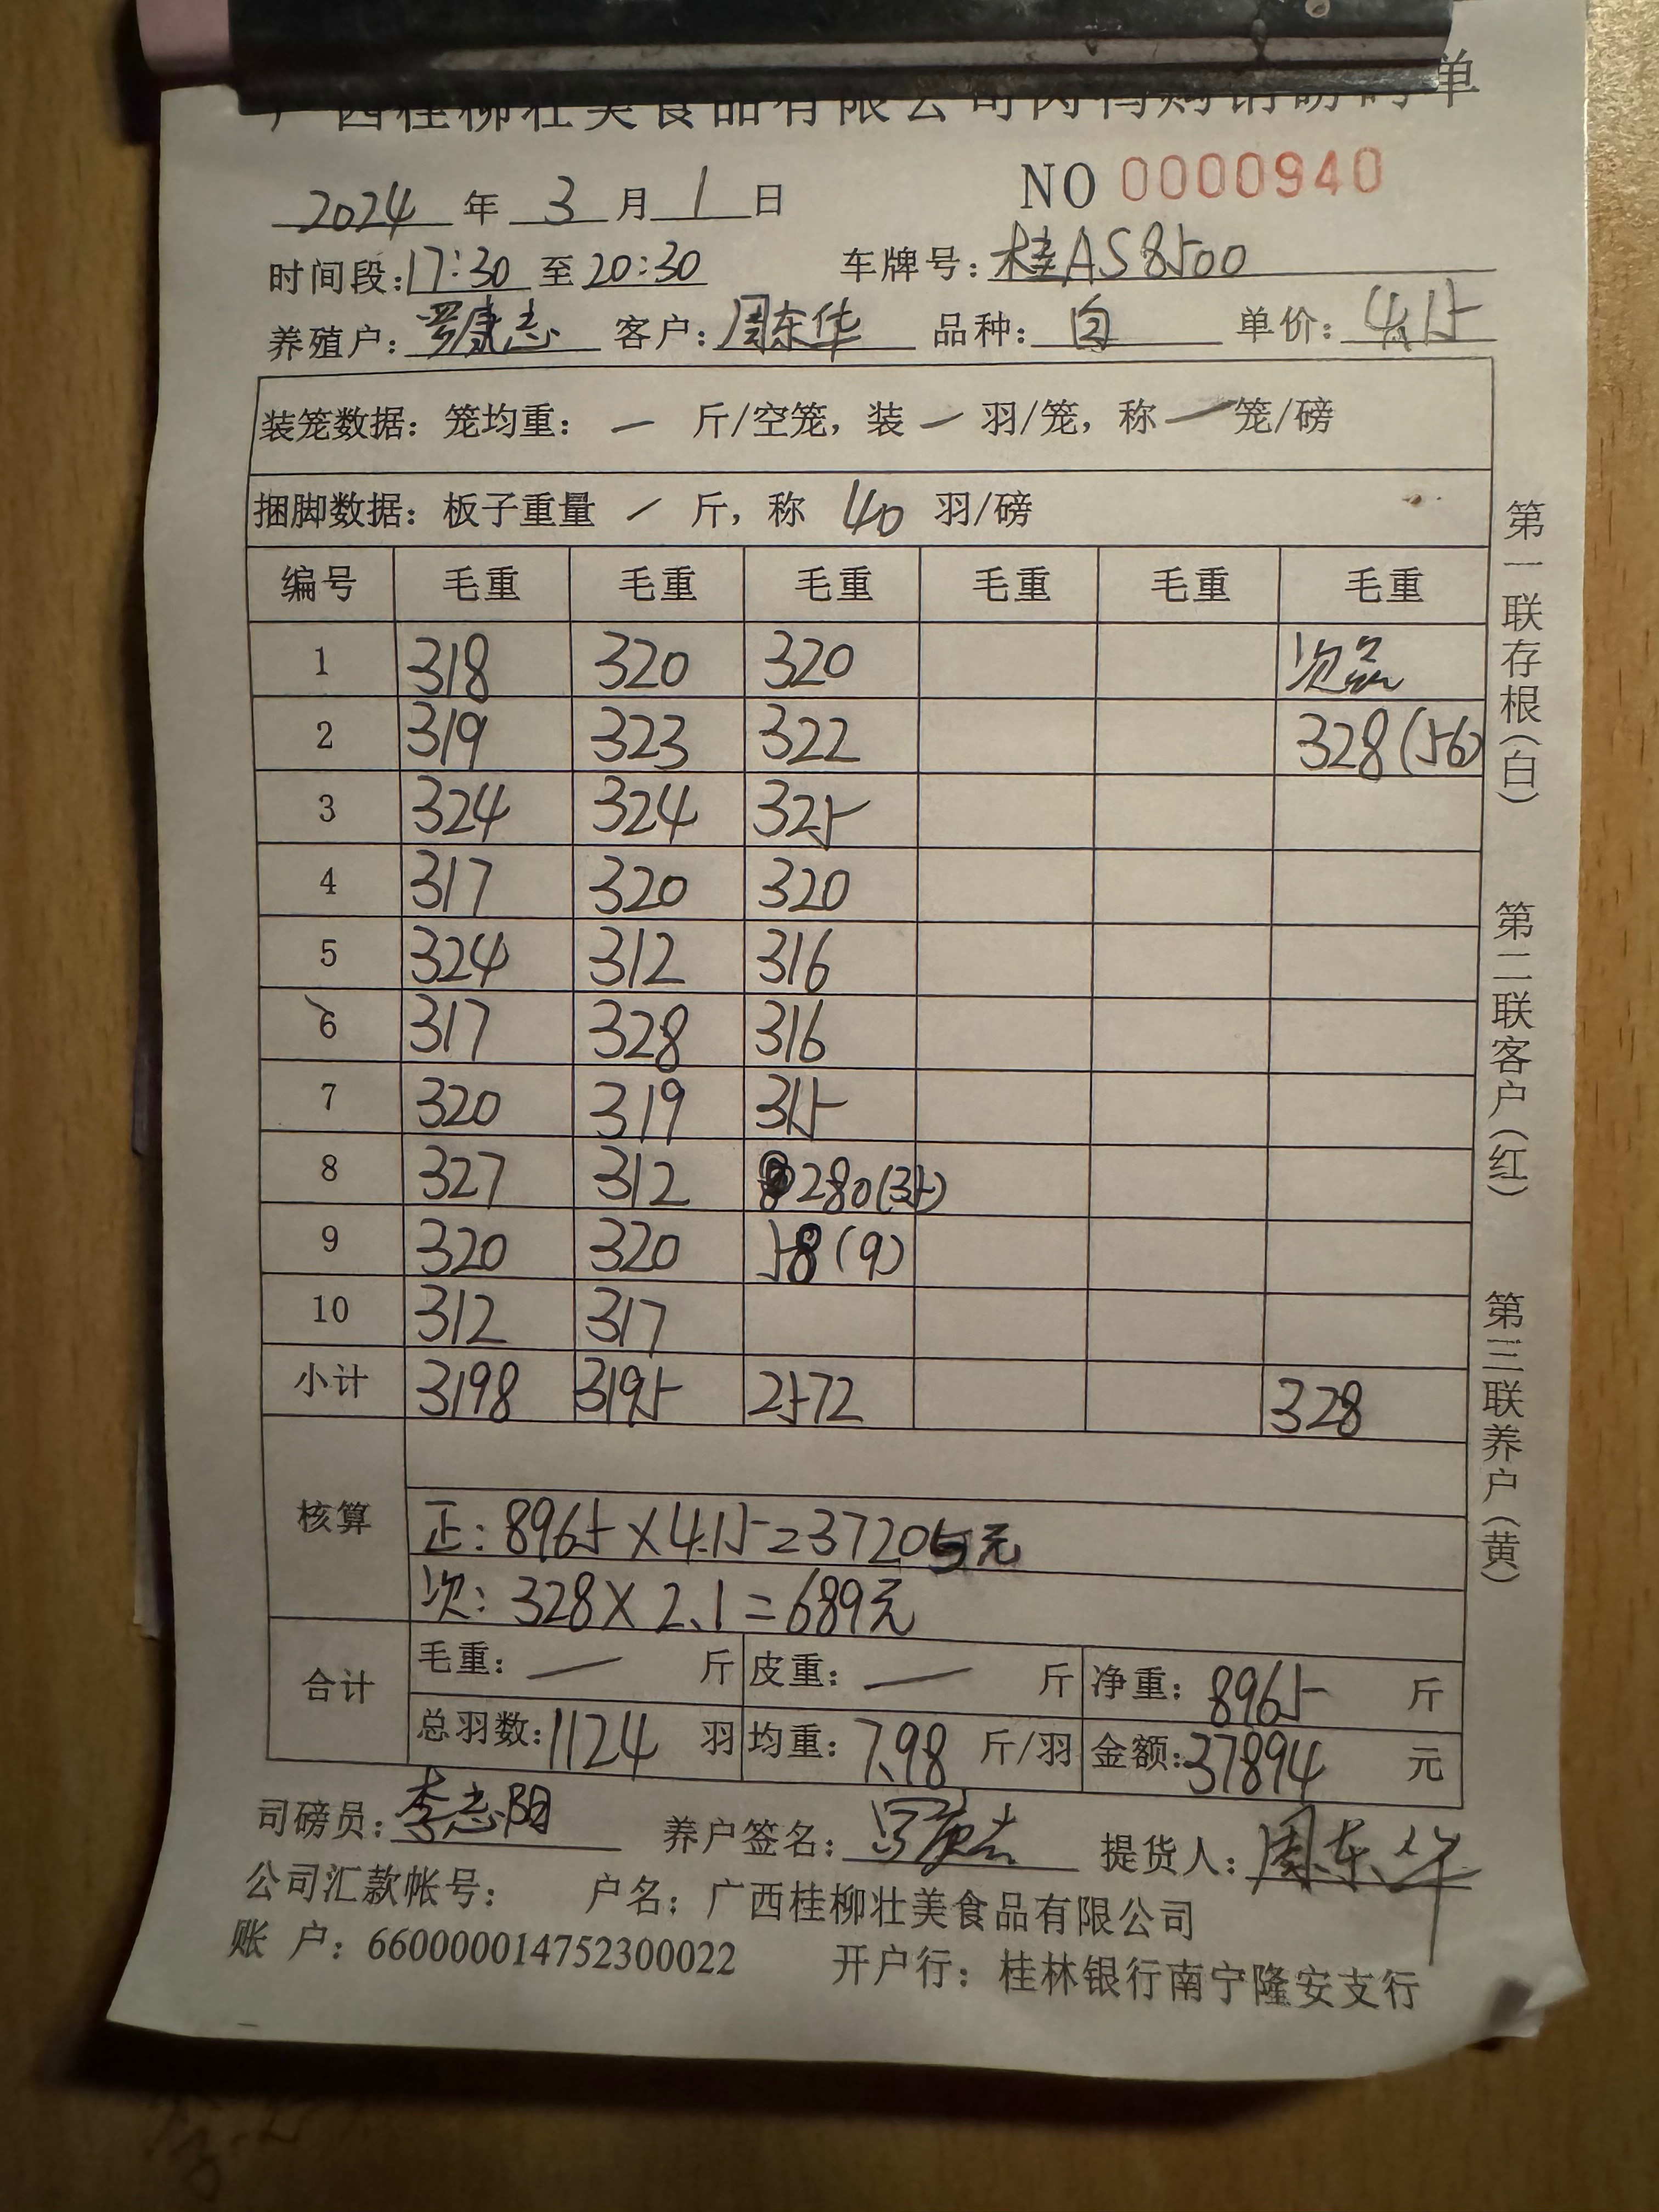 广西桂柳壮美食品有限公司肉鸭购销磅码单
2024 年 3 月 1 日 NO 0000940
时间段:17:30 至 20:30 车牌号:桂AS8500
养殖户:罗康志 客户:周东华 品种:白 单价:4.15
装笼数据:笼均重:— 斤/空笼,装 — 羽/笼,称 — 笼/磅
捆脚数据:板子重量 — 斤,称 40 羽/磅
编号 毛重 毛重 毛重 毛重 毛重 毛重
1 318 320 320 次品
2 319 323 322 328(56)
3 324 324 325
4 317 320 320
5 324 312 316
6 317 328 316
7 320 319 315
8 327 312 280(35)
9 320 320 58(9)
10 312 317
小计 3198 3195 2572 328
核算
正:8965×4.15=37205元
次:328×2.1=689元
合计
毛重:— 斤 皮重:— 斤 净重:8965 斤
总羽数:1124 羽 均重:7.98 斤/羽 金额:37894 元
司磅员:李志阳 养户签名:罗康志 提货人:周东华
公司汇款帐号: 户名:广西桂柳壮美食品有限公司
账 户:660000014752300022 开户行:桂林银行南宁隆安支行
第一联存根(白)
第二联客户(红)
第三联养户(黄)